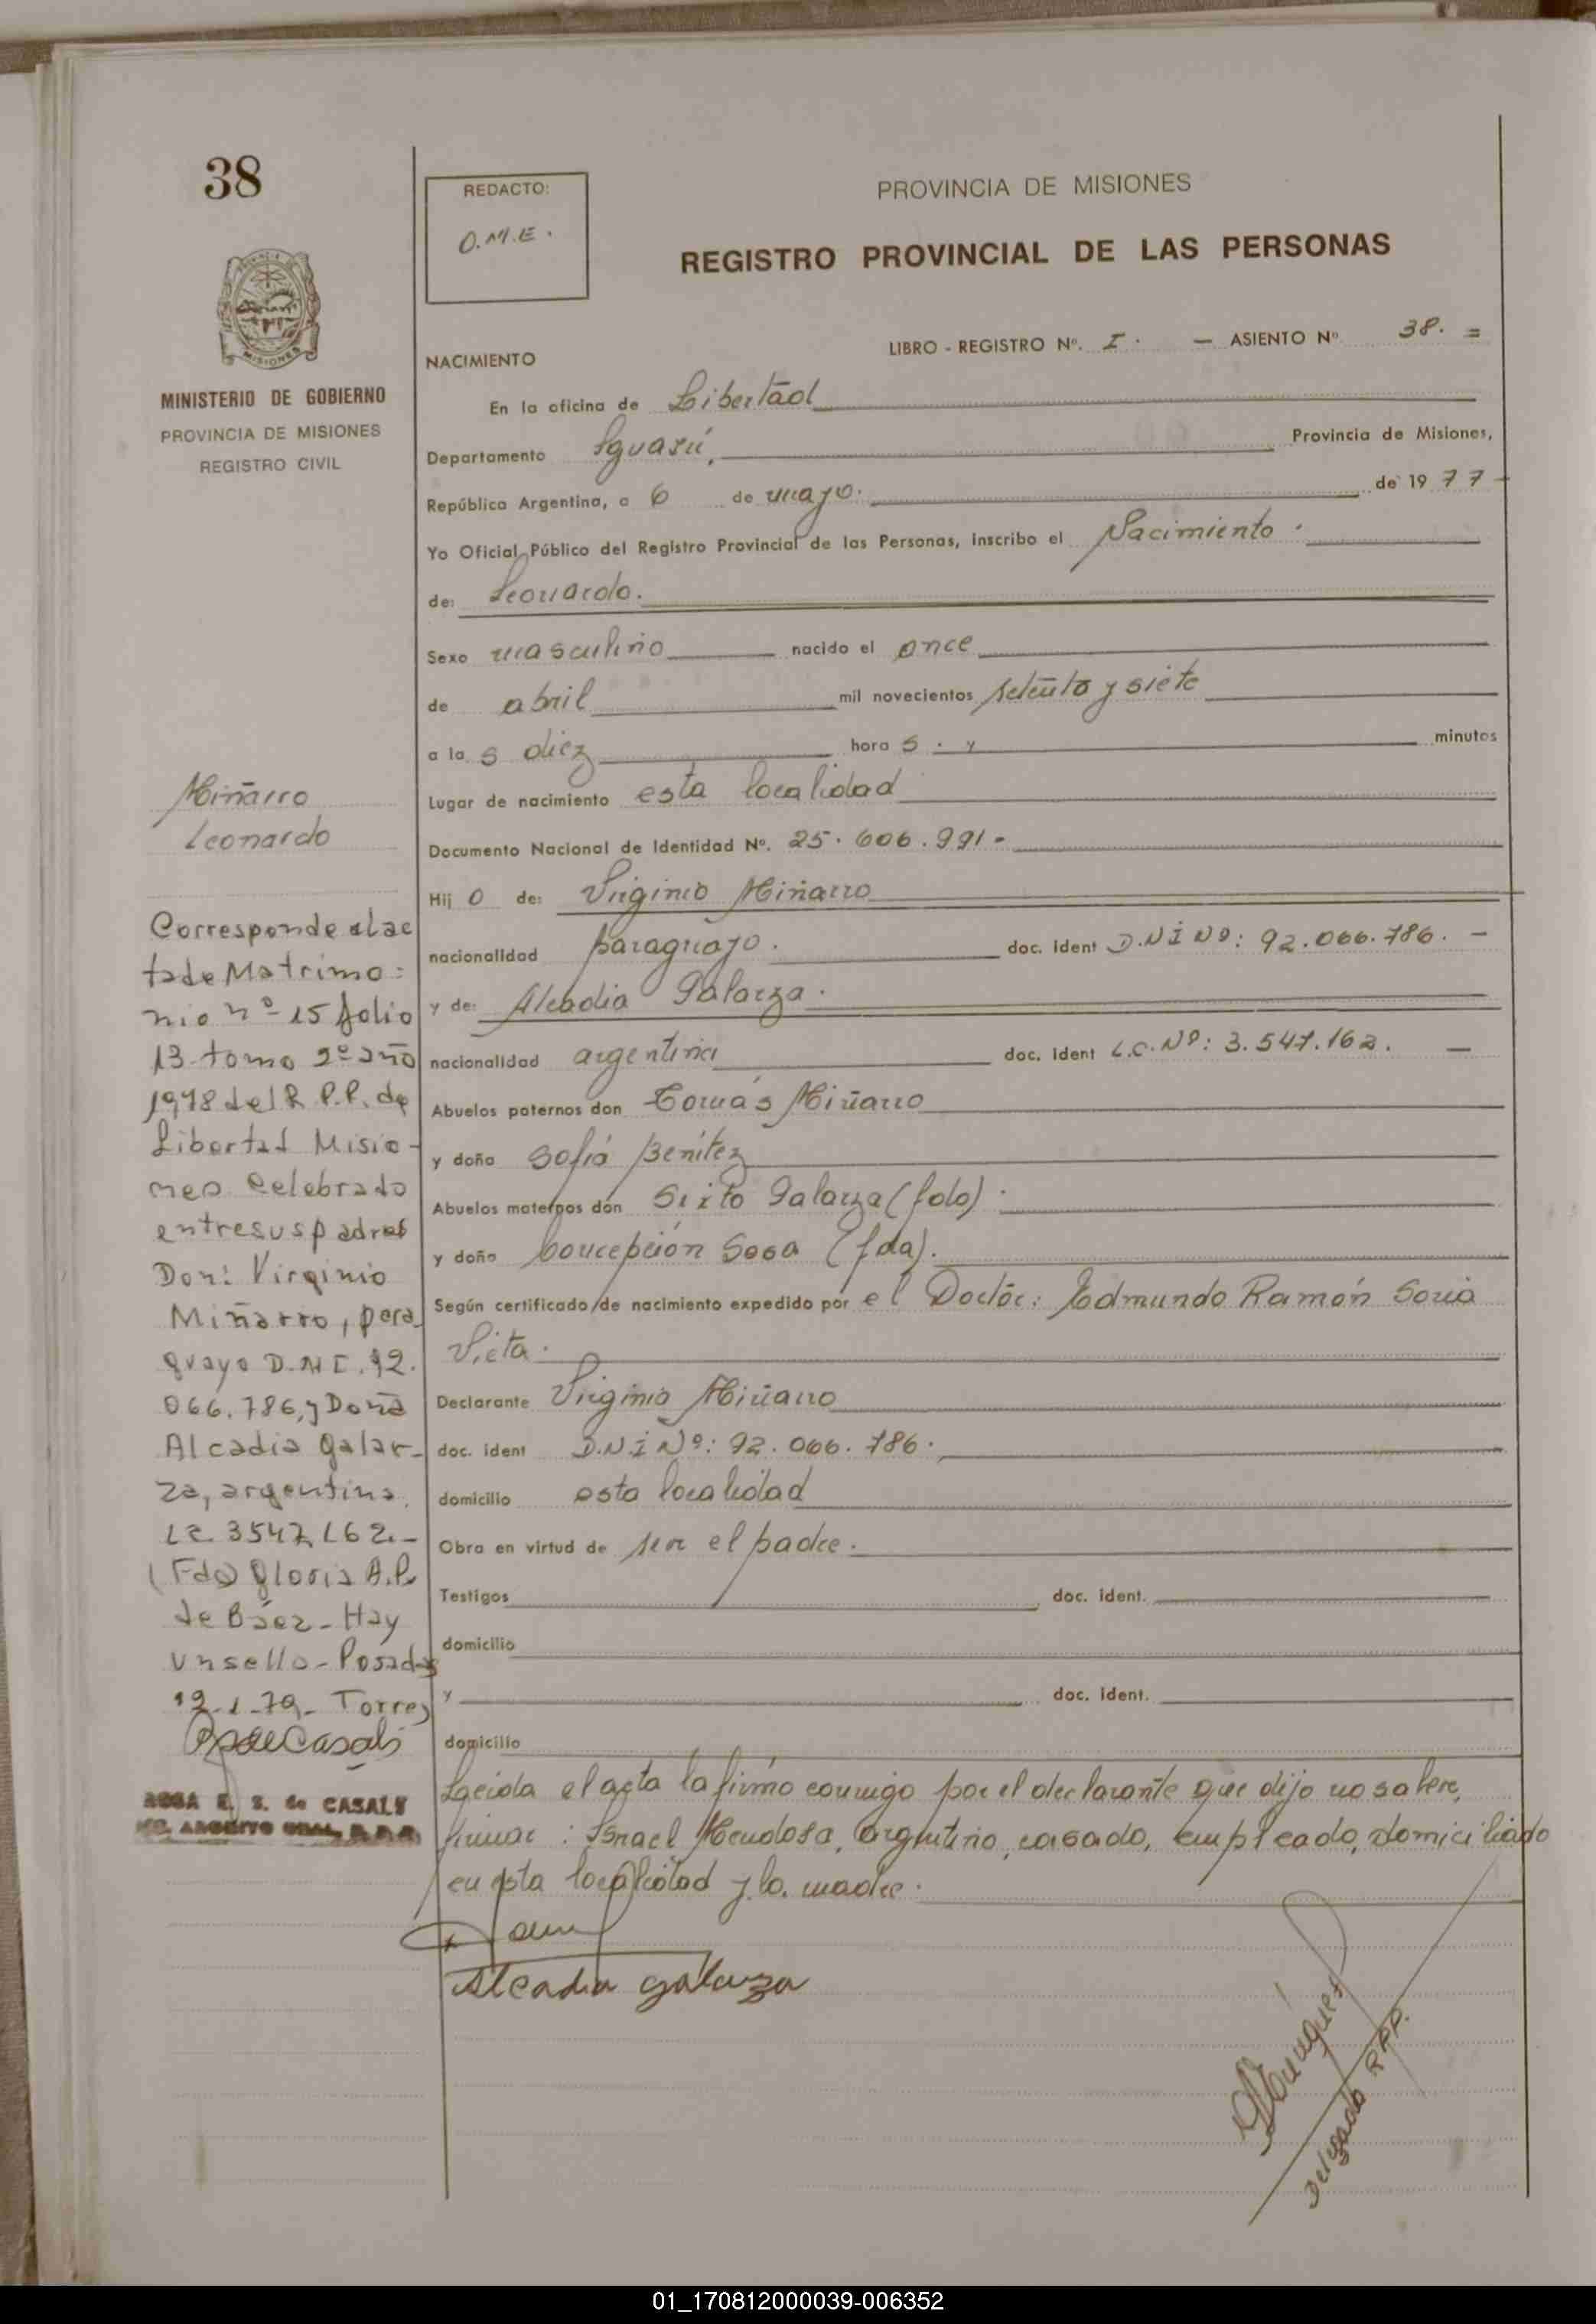 38
REDACTO:
O.M.E.
PROVINCIA DE MISIONES
REGISTRO PROVINCIAL DE LAS PERSONAS
MISIONES
MINISTERIO DE GOBIERNO
PROVINCIA DE MISIONES
REGISTRO CIVIL
LIBRO - REGISTRO Nº. I. — ASIENTO Nº 38. =
NACIMIENTO
En la oficina de Libertad
Departamento Iguazú, Provincia de Misiones,
República Argentina, a 6 de mayo. de 19 77-
Yo Oficial Público del Registro Provincial de las Personas, inscribo el Nacimiento.
de: Leonardo.
Sexo masculino nacido el once
de abril mil novecientos setenta y siete
a la s diez hora s. y minutos
Lugar de nacimiento esta localidad
Documento Nacional de Identidad Nº. 25.606.991-
Hij o de: Virginio Miñarro
nacionalidad paraguayo. doc. ident D.N.I Nº: 92.066.786. —
y de: Alcadia Galarza.
nacionalidad argentina doc. ident L.C. Nº: 3.547.162. —
Abuelos paternos don Tomás Miñarro
y doña Sofia Benítez
Abuelos maternos don Sixto Galarza (fdo).
y doña Concepción Sosa (fda).
Según certificado de nacimiento expedido por el Doctor: Edmundo Ramón Soria
Vieta.
Declarante Virginio Miñarro
doc. ident D.N.I Nº: 92.066.786.
domicilio esta localidad
Obra en virtud de ser el padre.
Testigos doc. ident.
domicilio
y doc. ident.
domicilio
Laeida el acta la firmo conmigo por el declarante que dijo no saber,
firmar: Isnael Mendosa, argentino, casado, empleado, domiciliado
en esta localidad y la. madre.
Alcadia galarza
Delegado R.P.P.
Miñarro
Leonardo
Corresponde al ac
ta de Matrimo=
nio nº 15 folio
13 tomo 2º año
1978 del R.P.P. de
Libertad Misio-
nes Celebrado
entre sus padres
Don: Virginio
Miñarro, para
guayo D.N.I. 92.
066.786, y Doña
Alcadia galar-
za, argentina,
LC 3547162.-
(Fdo) Gloria A.P.
de Báez- Hay
un sello- Posadas
12-1-79- Torres
ROSA E. S. de CASALS
01_170812000039-006352